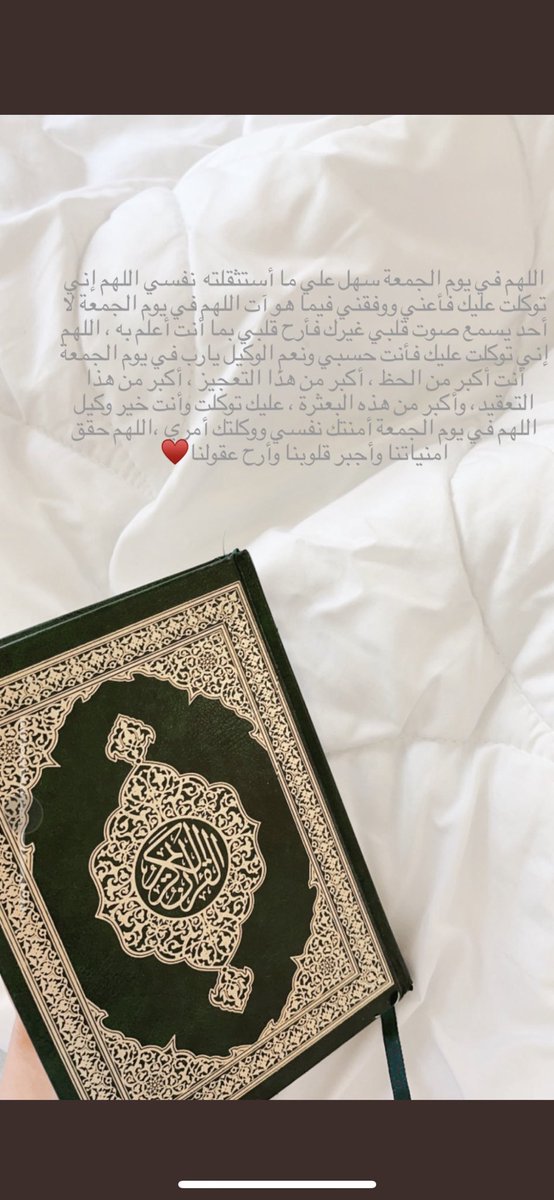 اللهم في يوم الجمعة سهل علي ما أستثقلته نفسي اللهم إني
توكلت عليك فأعني ووفقني فيما هو آت اللهم في يوم الجمعة لا
أحد يسمع صوت قلبي غيرك فأرح قلبي بما أنت أعلم به ، اللهم
إني توكلت عليك فأنت حسبي ونعم الوكيل يارب في يوم الجمعة
أنت أكبر من الحظ ، أكبر من هذا التعجيز ، أكبر من هذا
التعقيد ، وأكبر من هذه البعثرة ، عليك توكلت وأنت خير وكيل
اللهم في يوم الجمعة أمنتك نفسي ووكلتك أمري ،اللهم حقق
امنياتنا وأجبر قلوبنا وأرح عقولنا♥️
القرآن الكريم